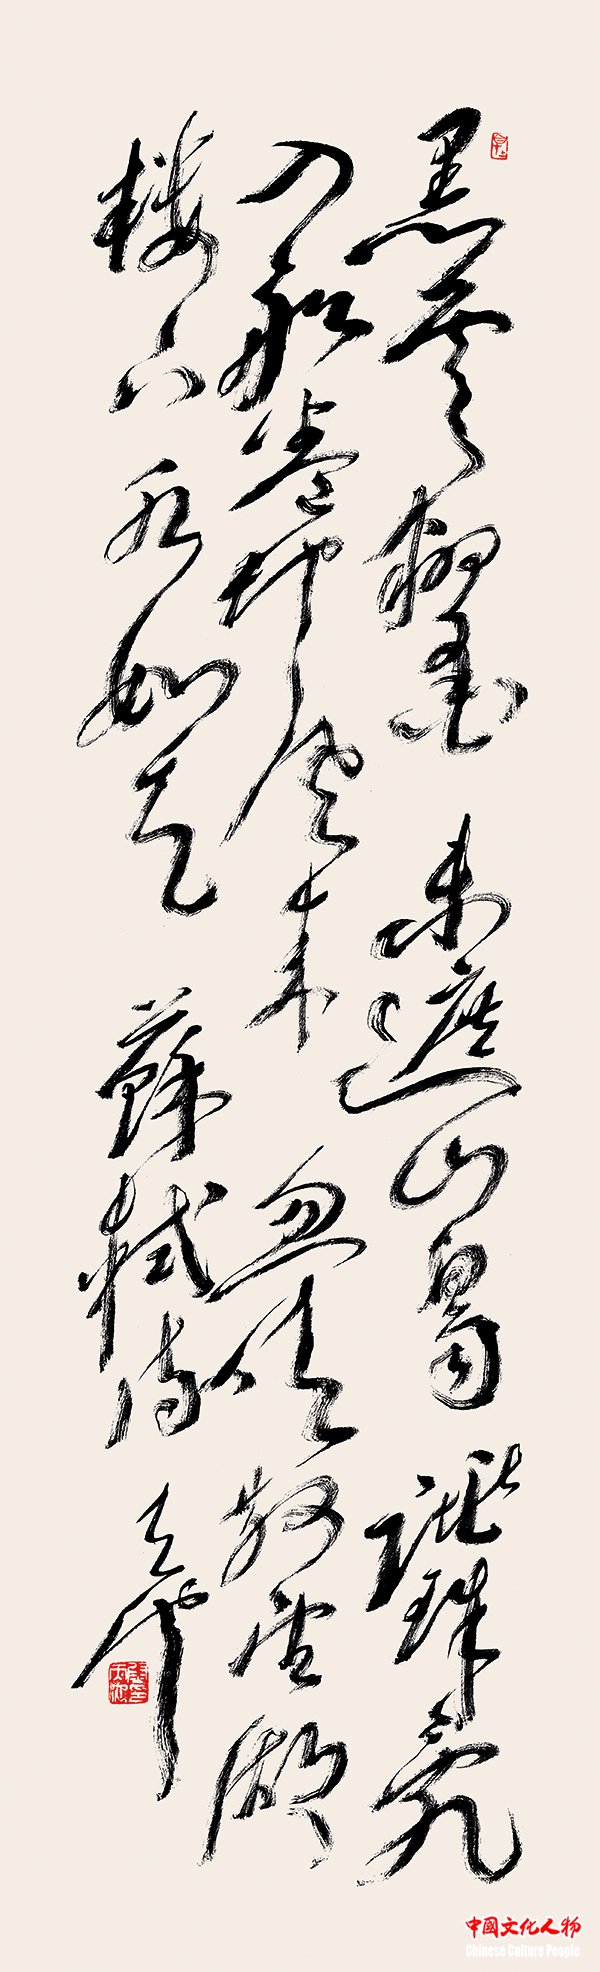 黑雲翻墨未遮山白雨跳珠亂
入船卷地風來忽吹散望湖
樓下水如天蘇軾詩
中國文化人物
Chinese Culture People